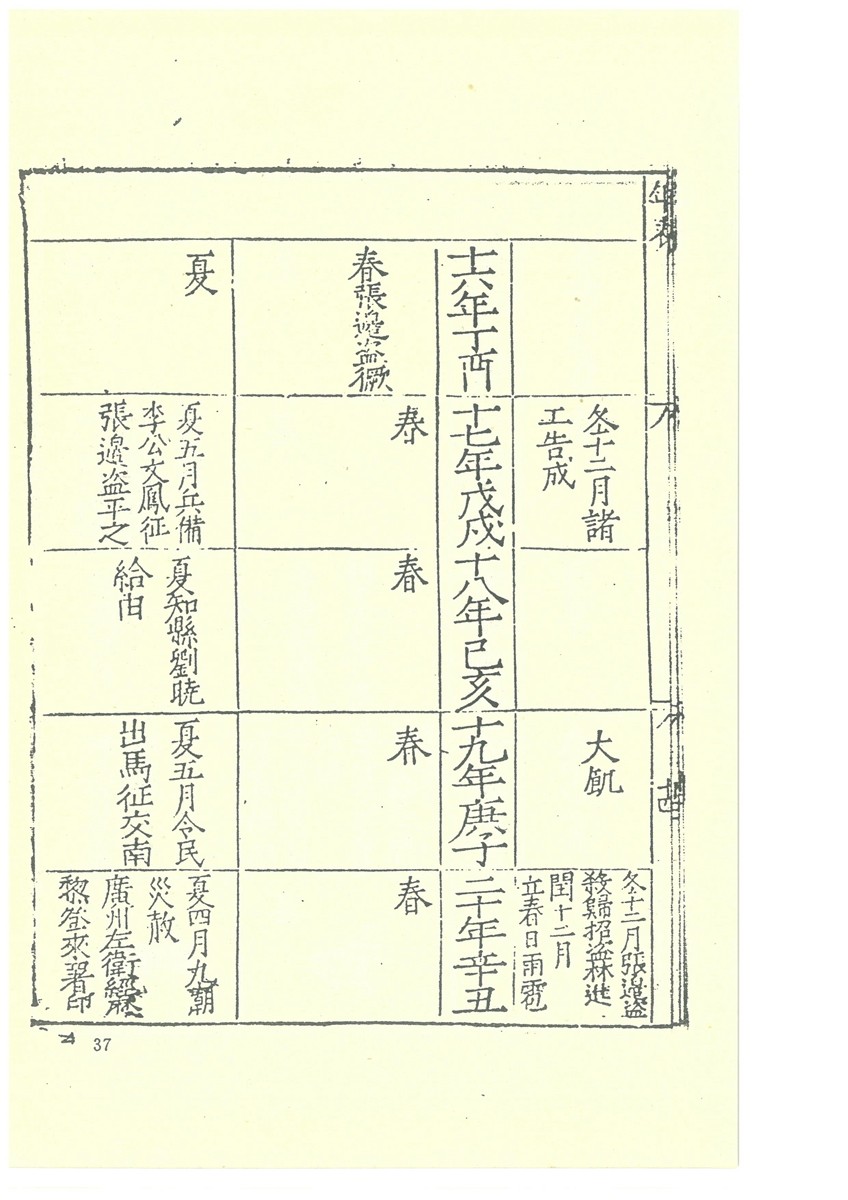 年表
冬十二月諸
工告成
大飢
冬十二月張邊盗
殺歸招盗林進
閏十二月
立春日雨雹
十六年丁酉
十七年戊戌
十八年己亥
十九年庚子
二十年辛丑
春張邊盗獗
春
春
春
春
夏
夏五月兵備
李公文鳳征
張邊盗平之
夏知縣劉曉
給由
夏五月令民
出馬征交南
夏四月九朝
災赦
廣州左衛經歷
黎登來署印
37